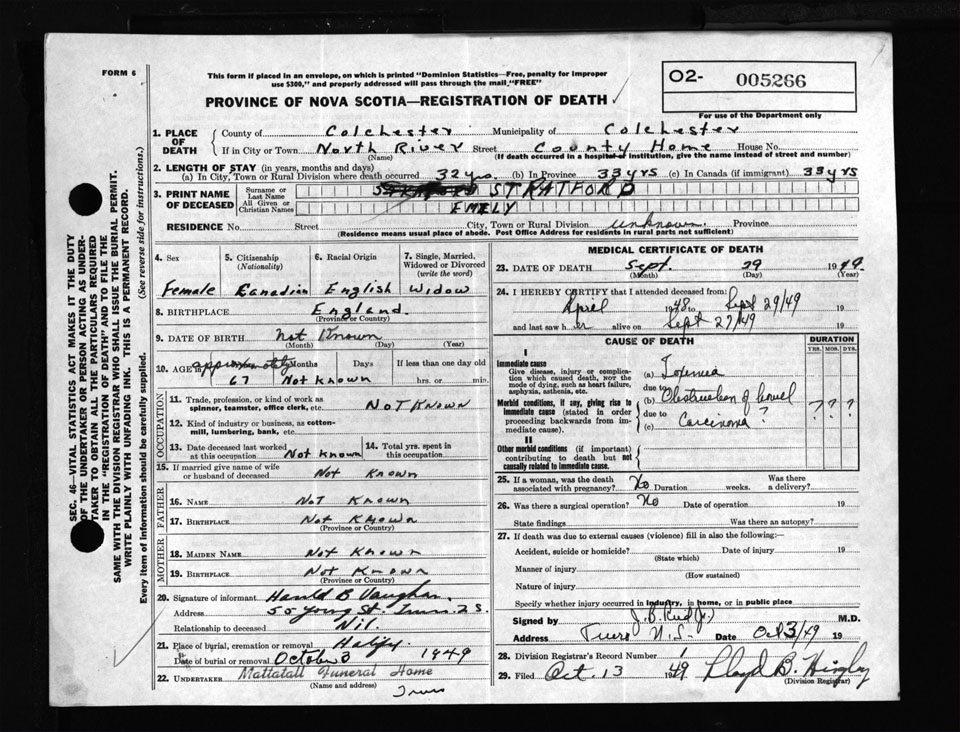 FORM 6
This form if placed in an envelope, on which is printed "Dominion Statistics—Free, penalty for improper
use $300," and properly addressed will pass through the mail "FREE"
PROVINCE OF NOVA SCOTIA—REGISTRATION OF DEATH
O2- 005266
For use of the Department only
1. PLACE OF DEATH
County of Colchester Municipality of Colchester
If in City or Town North River Street County Home House No.
(Name) (If death occurred in a hospital or institution, give the name instead of street and number)
2. LENGTH OF STAY (in years, months and days)
(a) In City, Town or Rural Division where death occurred 32 yrs. (b) In Province 33 yrs (c) In Canada (if immigrant) 33 yrs
3. PRINT NAME OF DECEASED
Surname or Last Name STRATFORD
All Given or Christian Names EMELY
RESIDENCE No. Street City, Town or Rural Division unknown Province
(Residence means usual place of abode. Post Office Address for residents in rural parts not sufficient)
4. Sex 5. Citizenship (Nationality) 6. Racial Origin 7. Single, Married, Widowed or Divorced (write the word)
Female Canadian English Widow
8. BIRTHPLACE England
(Province or Country)
9. DATE OF BIRTH Not Known
(Month) (Day) (Year)
10. AGE approximately Months Days If less than one day old
67 Not Known hrs. or min.
OCCUPATION
11. Trade, profession, or kind of work as spinner, teamster, office clerk, etc. Not Known
12. Kind of industry or business, as cotton-mill, lumbering, bank, etc.
13. Date deceased last worked at this occupation Not Known
14. Total yrs. spent in this occupation
15. If married give name of wife or husband of deceased Not Known
FATHER
16. NAME Not Known
17. BIRTHPLACE Not Known
(Province or Country)
MOTHER
18. MAIDEN NAME Not Known
19. BIRTHPLACE Not Known
(Province or Country)
20. Signature of informant Harold B Vaughan
Address 55 Young St. Truro N.S.
Relationship to deceased Nil.
21. Place of burial, cremation or removal Halifx
Date of burial or removal October 3 1949
22. UNDERTAKER Mattatall Funeral Home
(Name and address) Truro
MEDICAL CERTIFICATE OF DEATH
23. DATE OF DEATH Sept. 29 1949
(Month) (Day) (Year)
24. I HEREBY CERTIFY that I attended deceased from:
April 1948 to Sept 29/49 19
and last saw her alive on Sept 27/49 19
CAUSE OF DEATH DURATION
YRS. MOS. DYS.
I
Immediate cause
Give disease, injury or complication which caused death, not the mode of dying, such as heart failure, asphyxia, asthenia, etc.
(a)
due to
(b) Obstruction of bowel
Morbid conditions, if any, giving rise to immediate cause (stated in order proceeding backwards from immediate cause).
due to
(c) Carcinoma ?
? ? ?
II
Other morbid conditions (if important) contributing to death but not causally related to immediate cause.
25. If a woman, was the death associated with pregnancy? No Duration weeks. Was there a delivery?
26. Was there a surgical operation? No Date of operation 19
State findings Was there an autopsy?
27. If death was due to external causes (violence) fill in also the following:—
Accident, suicide or homicide? Date of injury 19
(State which)
Manner of injury
(How sustained)
Nature of injury
Specify whether injury occurred in industry, in home, or in public place
Signed by J.B. Reid Jr. M.D.
Address Truro N.S. Date Oct 3/49 19
28. Division Registrar's Record Number 1
29. Filed Oct. 13 1949 Lloyd B.
(Division Registrar)
SEC. 46—VITAL STATISTICS ACT MAKES IT THE DUTY
OF THE UNDERTAKER OR PERSON ACTING AS UNDER-
TAKER TO OBTAIN ALL THE PARTICULARS REQUIRED
IN THE "REGISTRATION OF DEATH" AND TO FILE THE
SAME WITH THE DIVISION REGISTRAR WHO SHALL ISSUE THE BURIAL PERMIT.
WRITE PLAINLY WITH UNFADING INK. THIS IS A PERMANENT RECORD.
Every item of information should be carefully supplied. (See reverse side for instructions.)